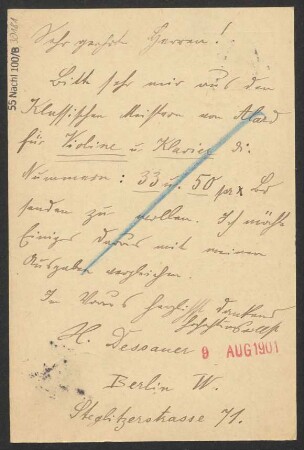 55 Nachl 100/B
Sehr geehrte Herren!
Bitte sehr mir aus den
Klassischen Meistern von Alard
für Violine u. Klavier die
Nummern: 33 u. 50 per X Bd
senden zu wollen. Ich möchte
Einiges daraus mit meinen
Ausgaben vergleichen.
Im Voraus herzlich dankend
H. Dessauer
9 AUG 1901
Berlin W.
Steglitzerstrasse 71.